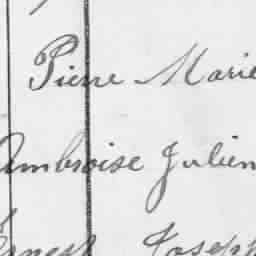 Pierre Marie
Ambroise Julien
Ernest Joseph